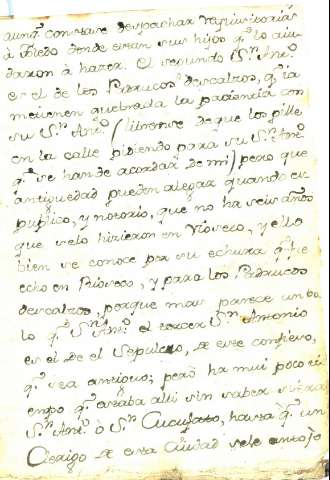 aunq.e con trave despachar requisitorias
à Toledo donde estan sus hijos q.e lo aiu
daron à hazer. El segundo S.n Ant.o
es el de los Padrucos descalzos, q.e ià
me tienen quebrada la paciencia con
su S.n Ant.o (librense de que los pille
en la calle pidiendo para su S.n Ant.o
q.e se han de acordar de mi) pero que
antiguedad pueden alegar quando es
publico, y notorio, que no ha seis años
que se lo hizieron en Rioseco, y ello
bien se conoce por su echura q.e fue
echo en Rioseco, y para los Padrucos
descalzos, porque mas parece un ba
lo q.e S.n Ant.o el tercer S.n Antonio
es el de el Sepulcro, de este confieso,
q.e sea antiguo; però ha mui poco ti
empo q.e estaba alli sin saber si era
S.n Ant.o ò S.n Cucufato, hasta q.e un
Clerigo de esa Ciudad se le antojò